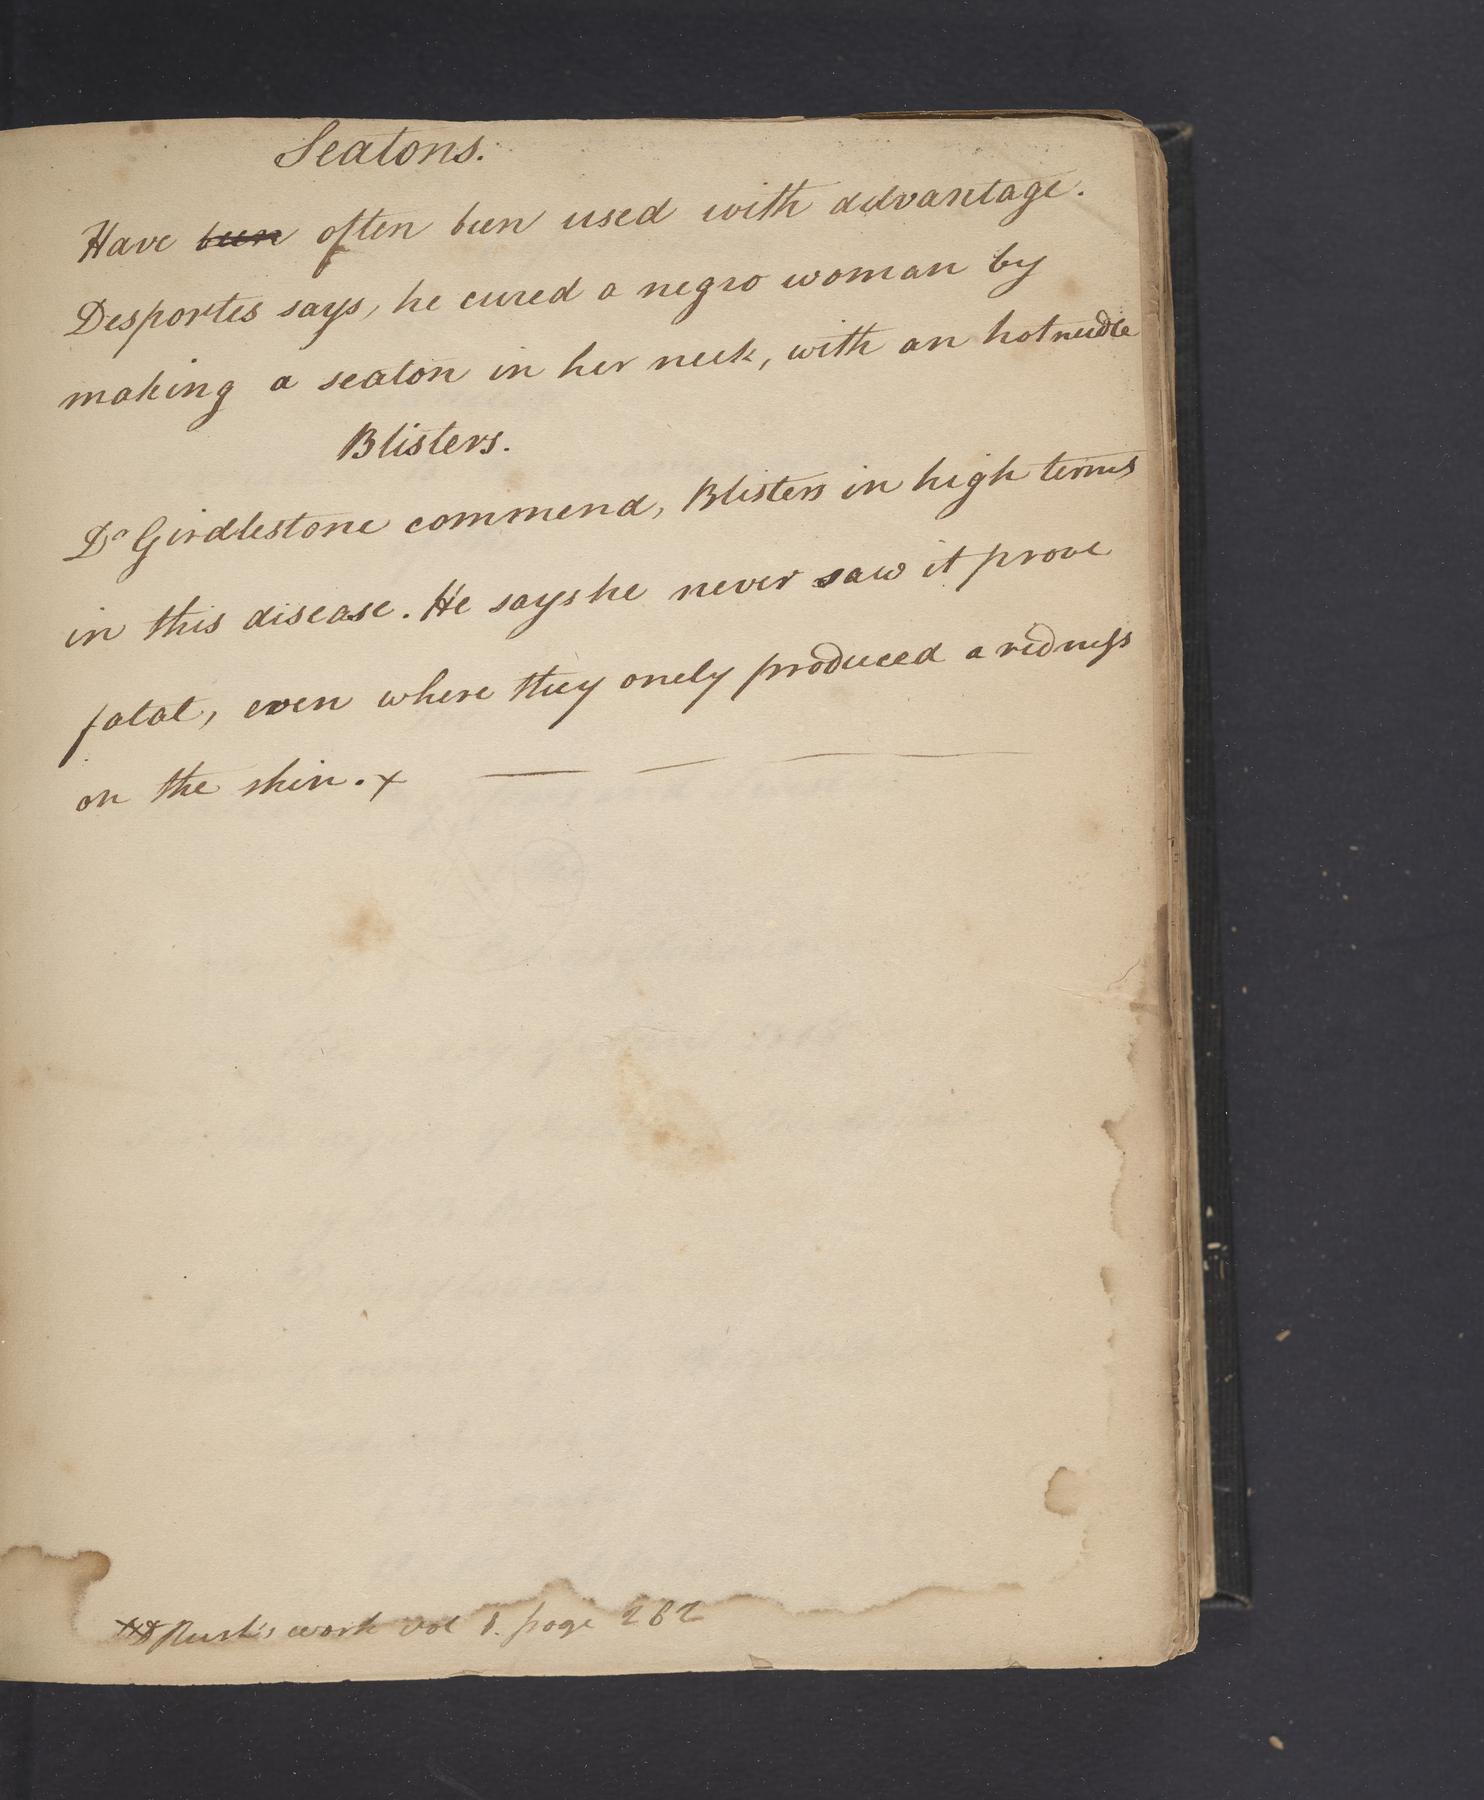 Seatons.
Have been often been used with advantage.
Desportes says, he cured a negro woman by
making a seaton in her neck, with an hot needle
Blisters.
Dr Girdlestone commend, Blisters in high terms
in this disease. He says he never saw it prove
fatal, even where they onely produced a redness
on the skin. x
Rush's work vol 1. page 262